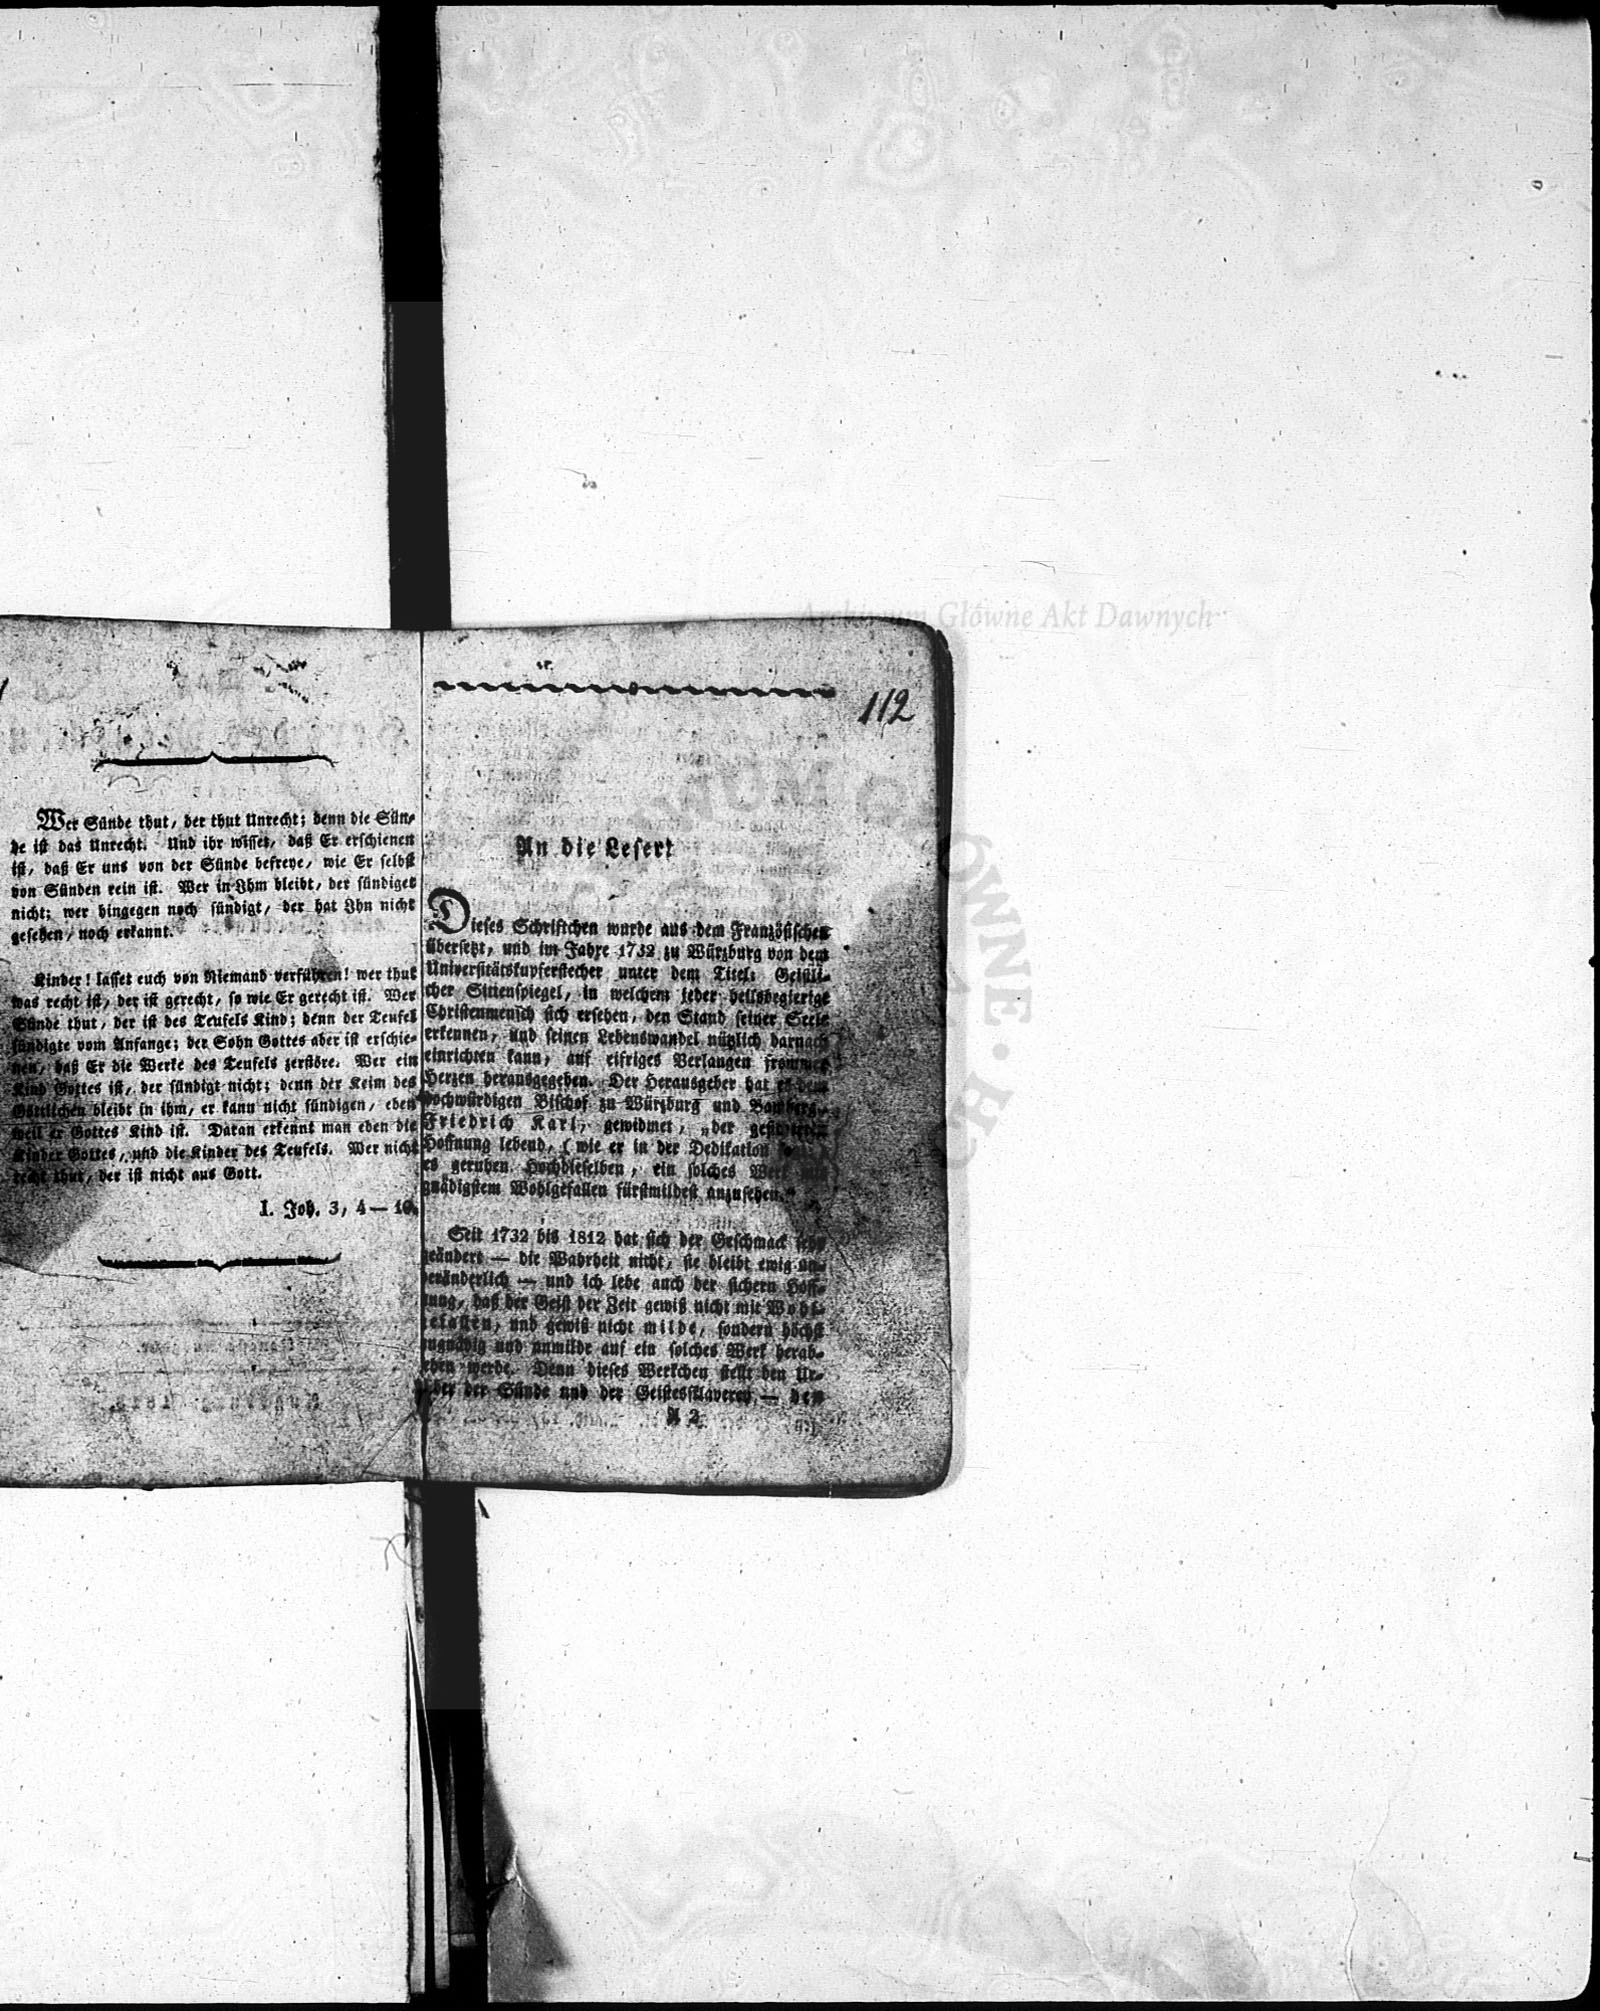 Wer Sünde thut, der thut Unrecht; denn die Sün-
de ist das Unrecht. Und ihr wisset, daß Er erschienen
ist, daß Er uns von der Sünde befreye, wie Er selbst
von Sünden rein ist. Wer in Ihm bleibt, der sündiget
nicht; wer hingegen noch sündigt, der hat Ihn nicht
gesehen, noch erkannt.
Kinder! lasset euch von Niemand verführen! wer thut
was recht ist, der ist gerecht, so wie Er gerecht ist. Wer
Sünde thut, der ist des Teufels Kind; denn der Teufel
sündigte vom Anfange; der Sohn Gottes aber ist erschie-
nen, daß Er die Werke des Teufels zerstöre. Wer ein
Kind Gottes ist, der sündigt nicht; denn der Keim des
Göttlichen bleibt in ihm, er kann nicht sündigen, eben
weil er Gottes Kind ist. Daran erkennt man eben die
Kinder Gottes, und die Kinder des Teufels. Wer nicht
recht thut, der ist nicht aus Gott.
I. Joh. 3, 4—10.
112
An die Leser!
Dieses Schriftchen wurde aus dem Französischen
übersetzt, und im Jahre 1732 zu Würzburg von dem
Universitätskupferstecher unter dem Titel: Geistli-
cher Sittenspiegel, in welchem jeder heilsbegierige
Christenmensch sich ersehen, den Stand seiner Seele
erkennen, und seinen Lebenswandel nützlich darnach
einrichten kann, auf eifriges Verlangen frommer
Herzen herausgegeben. Der Herausgeber hat es dem
Hochwürdigen Bischof zu Würzburg und Bamberg,
Friedrich Karl, gewidmet, „der
Hoffnung lebend, (wie er in der Dedikation
es geruhen Hochdieselben, ein solches Werk mit
gnädigstem Wohlgefallen fürstmildest anzusehen.“
Seit 1732 bis 1812 hat sich der Geschmack sehr
geändert — die Wahrheit nicht, sie bleibt ewig un-
veränderlich — und ich lebe auch der sichern Hoff-
nung, daß der Geist der Zeit gewiß nicht mit Wohl-
gefallen, und gewiß nicht milde, sondern höchst
ungnädig und unmilde auf ein solches Werk herab-
sehen werde. Denn dieses Werkchen stellt den Ur-
heber der Sünde und der Geistessklaverey, — den
A 2
Archiwum Główne Akt Dawnych